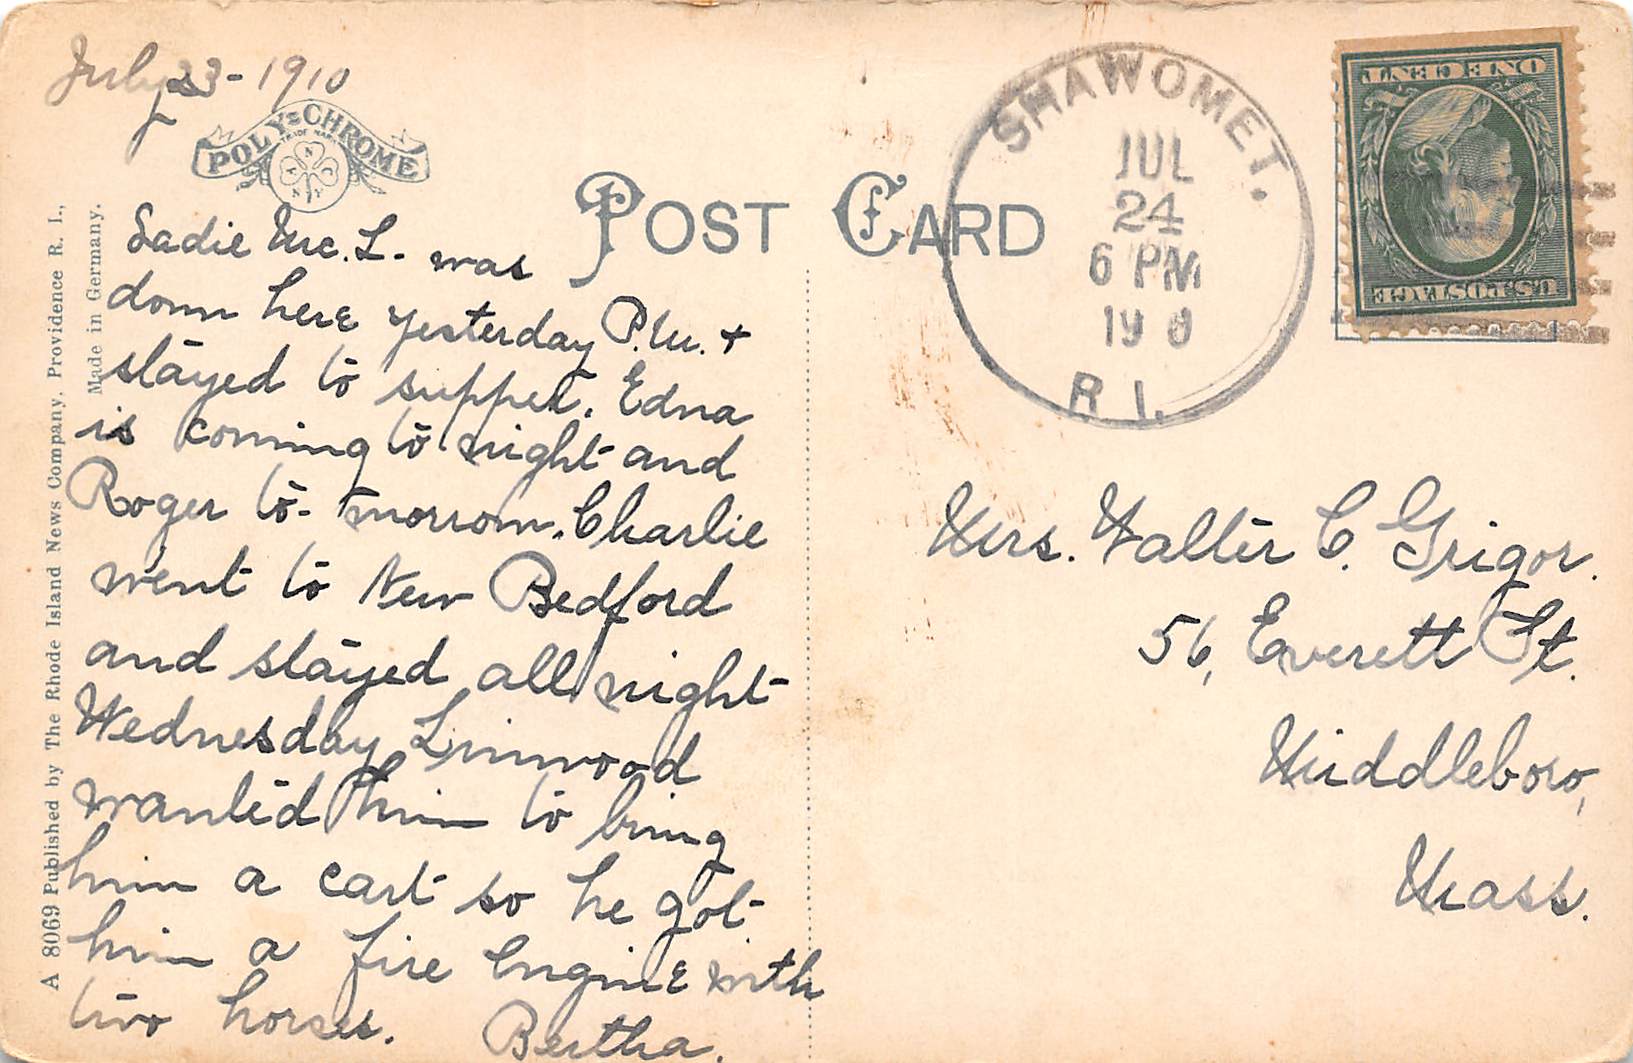 July 23-1910
POLY-CHROME
TRADE MARK
POST CARD
Sadie Mc. L. was
down here yesterday P.M. +
stayed to supper. Edna
is coming to night and
Roger to-morrow. Charlie
went to New Bedford
and stayed all night
Wednesday Linwood
wanted him to bring
him a cart so he got
him a fire Engine with
two horses. Bertha.
A 8069 Published by The Rhode Island News Company, Providence R. I.,
Made in Germany.
SHAWOMET.
JUL
24
6 PM
19 0
R. I.
ONE CENT
U.S. POSTAGE
Mrs. Walter C. Grigor.
56, Everett St.
Middleboro,
Mass.